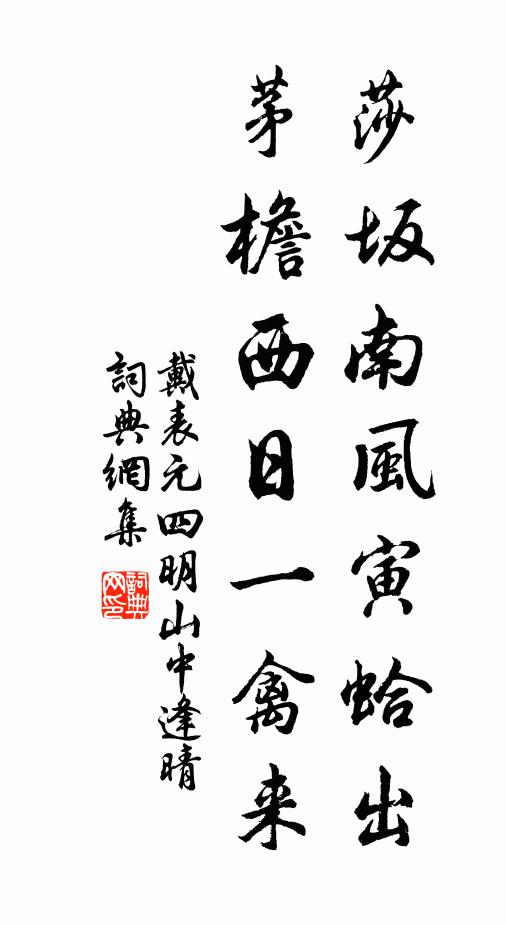 莎坂南風寅蛤出
茅檐西日一禽来
戴表元四明山中逢晴
詞典網集
詞典网印